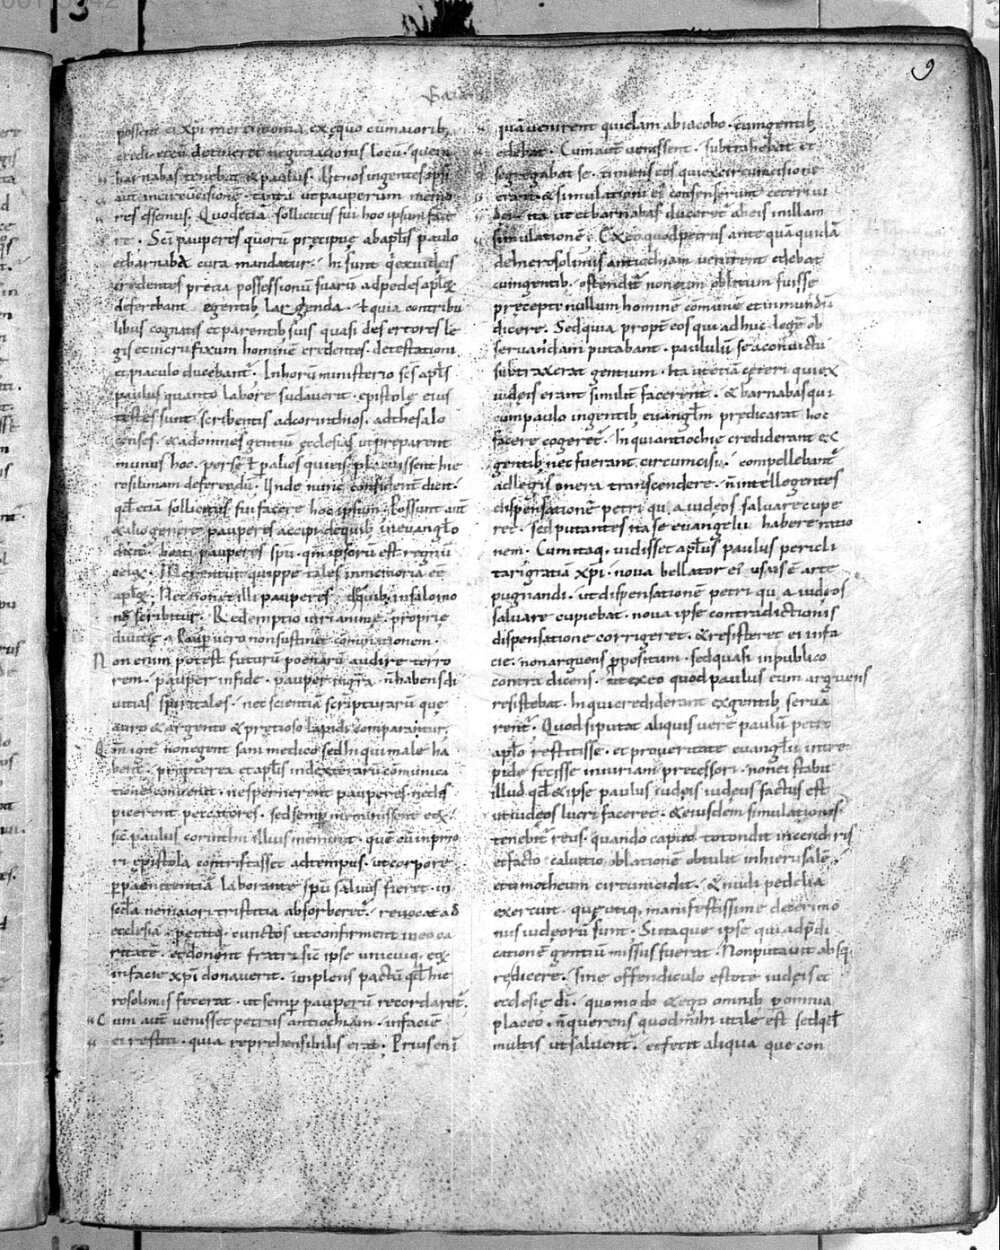 9
posset et xpi mei euvonia, ex equo cum maiorib;
credi ecce detineret negociationis locu. quem
barnabas tenebat & paulus. Ut nos in gentes ipsi
aut in circucisione. tantu ut pauperum memo
res essemus. Quod etia sollicitus fui hoc ipsum face
re. Sci pauperes quoru precipue ab aplis paulo
et barnaba cura mandatur. hi sunt q ex iudeis
credentes precia possessionu suaru ad pedes aplo
deferebant egentib; largenda. t quia contribu
libus cognatis et parentib; suis quasi desertores le
gis et in crucifixum homine credentes. detestationi
et piaculo ducebant. In horu ministerio scs apls
paulus quanto labore sudaverit. epistole eius
testes sunt. scribentis ad corinthios. ad thesalo
censes. & ad omnes gentiu ecclesias ut preparent
munus hoc. per se t p alios qui eis placuissent hie
rosolimam deferendu. Unde nunc confident dicit.
qd etia sollicitus fui facere hoc ipsum. Possunt aut
& alio genere pauperes accipi de quib; in evanglo
dicit. beati pauperes spu. qm ipsoru est regnu
celor. Merentur quippe tales in memoria ee
aplor. Nec non et illi pauperes de quib; in salomo
ne scribitur. Redemptio viri anime. proprie
divitie. Pauper vero non sustinet cominationem.
Non enim potest futuru poenaru audire terro
rem. pauper in fide. pauper in gra. n habens di
vitias spiritales. nec scientia scripturaru que
auro & argento & precioso lapidi comparantur.
Qm igit non egent sani medico sed hi qui male ha
bent. propterea et aplis in dexteraru comunica
tione convenit. ne spernerent pauperes. nec des
picerent peccatores. sed semp meminissent eor.
sic paulus corinthii illius meminit. que cu in prio
ri epistola contristasset ad tempus. ut corpore
p paenitentia laborante spu salvus fieret. in
scda ne maiori tristitia absorberet. revocat ad
ecclesia. petitq. cunctos ut confirment in eo ca
ritate. et donent fratri sic ipse unicuiq. eis
in facie xpi donaverit. implens pactu qd hie
rosolimis fecerat. ut semp pauperu recordaret.
Cum aut venisset petrus antiochiam. in facie
ei restiti. quia reprehensibilis erat. Prius eni
qua venirent quidam ab iacobo. cum gentib;
edebat. Cum aut venissent. subtrahebat et
segregabat se. timens eos qui ex circumcisione
erant. & simulationi ei consenserunt ceteri iu
dei. ita ut et barnabas duceret ab eis in illam
simulatione. Ex eo quod petrus ante qua quida
de hierosolimis antiochiam venirent edebat
cum gentib; ostendit non eum oblitum fuisse
precepti. nullum homine comune et inmundu
dicere. Sed quia propt eos qui adhuc lege ob
servandam putabant. paululu se a convictu
subtraxerat gentium. Ita ut etia ceteri qui ex
iudeis erant similit facerent. & barnabas qui
cum paulo in gentib; evanglm predicarat hoc
facere cogeret. hi qui antiochie crediderant ex
gentib; nec fuerant circumcisi. compellebant
ad legis onera transcendere. n intellegentes
dispensatione petri qu a iudeos salvare cupe
ret. sed putantes ita se evangelii habere ratio
nem. Cum itaq. vidisset aplus paulus pericli
tari gratia xpi. nova bellator ei usus e arte
pugnandi. ut dispensatione petri qu a iudeos
salvare cupiebat. nova ipse contradictionis
dispensatione corrigeret. & resisteret ei in fa
cie. non arguens ppositum. sed quasi in publico
contra dicens. ut ex eo quod paulus eum arguens
resistebat. hi qui crediderant ex gentib; serva
rent. Quod si putat aliquis vere paulu petro
aplo restitisse. et pro veritate evangelii intre
pide fecisse iniuriam precessori. non ei stabit
illud qd & ipse paulus iudeis iudeus factus est
ut iudeos lucri faceret. & eiusdem simulationis
tenebit reus. quando caput totondit in cenchris
et facto calvitio oblatione obtulit in hierusale.
et timotheum circumcidit. & nudi pedalia
exercuit. que utiq. manifestissime de cerimo
niis iudeoru sunt. Si itaque ipse qui ad pdi
catione gentiu missus fuerat. Non putavit absq.
re dicere. Sine offendiculo estote iudeis et
ecclesie di. quomodo & ego omnib; p omnia
placeo. n querens quod mihi utile est sed qd
multis ut salvent. et fecit aliqua que con